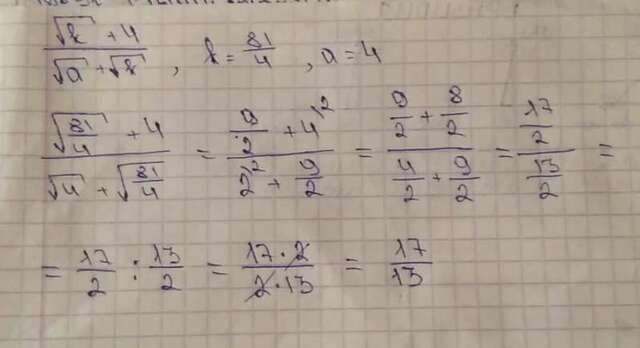 (√b + 4)/(√a + √b), b = 81/4, a = 4
(√(81/4) + 4)/(√4 + √(81/4)) = (9/2 + 4^(12))/(2^2 + 9/2) = (9/2 + 8/2)/(4/2 + 9/2) = (17/2)/(13/2) =
= 17/2 : 13/2 = (17 · 2)/(2 · 13) = 17/13